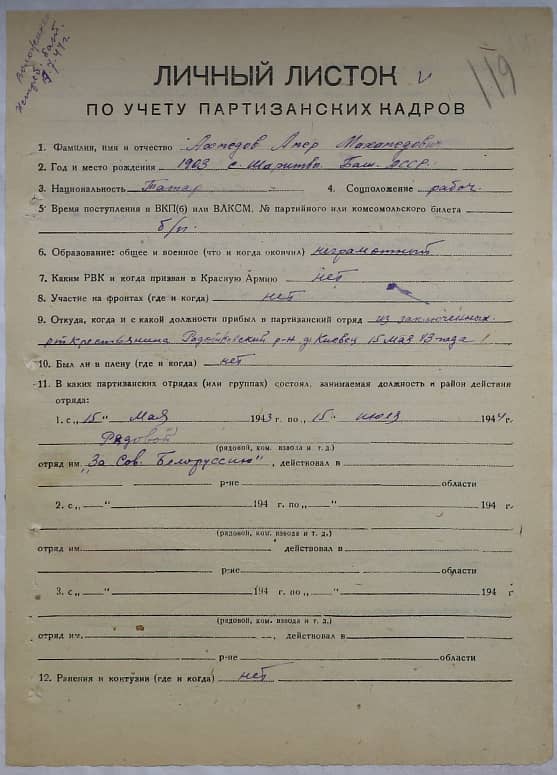 119
ЛИЧНЫЙ ЛИСТОК
ПО УЧЕТУ ПАРТИЗАНСКИХ КАДРОВ
1. Фамилия, имя и отчество Ахмедов Амер Махамедович
2. Год и место рождения 1903 с. Башк. АССР
3. Национальность Татар 4. Соцположение рабоч.
5. Время поступления в ВКП(б) или ВЛКСМ, № партийного или комсомольского билета
б/п.
6. Образование: общее и военное (что и когда окончил) неграмотный
7. Каким РВК и когда призван в Красную Армию нет
8. Участие на фронтах (где и когда) нет
9. Откуда, когда и с какой должности прибыл в партизанский отряд из заключённых
р-н д. Киевец 15 мая 43 года
10. Был ли в плену (где и когда) нет
11. В каких партизанских отрядах (или группах) состоял, занимаемая должность и район действия
отряда:
1. с „15“ Мая 1943 г. по „15“ июля 1944 г.
Рядовой
(рядовой, ком. взвода и т. д.)
отряд им. "За Сов. Белоруссию", действовал в
р-не области
2. с „ “ 194 г. по „ “ 194 г.
(рядовой, ком. взвода и т. д.)
отряд им. действовал в
р-не области
3. с „ “ 194 г. по „ “ 194 г.
(рядовой, ком. взвода и т. д.)
отряд им. , действовал в
р-не области
12. Ранения и контузии (где и когда) нет